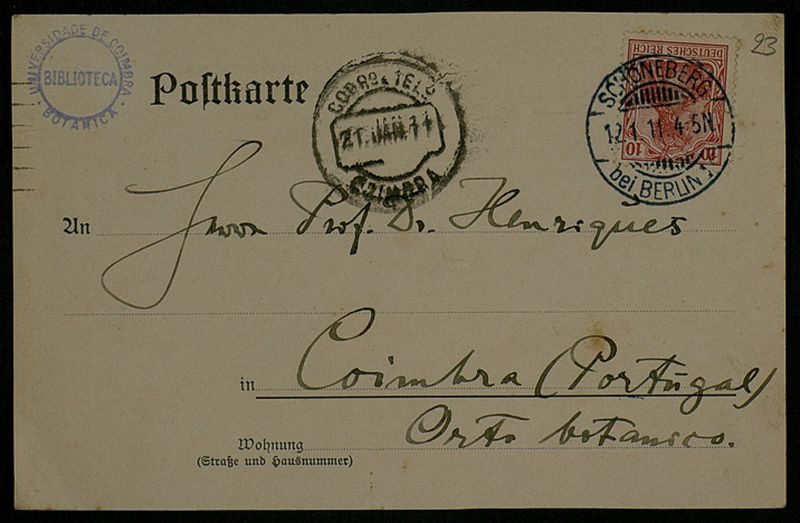 UNIVERSIDADE DE COIMBRA
BIBLIOTECA
BOTANICA
Postkarte
CORRO & TELO
21 JAN. 11
COIMBRA
DEUTSCHES REICH
10 10
SCHÖNEBERG
12.1.11. 4-5N.
bei BERLIN 1
23
An Herrn Prof. Dr. Henriques
in Coimbra (Portugal)
Orto botanico.
Wohnung
(Straße und Hausnummer)